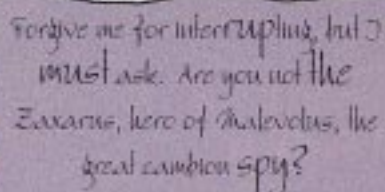 Forgive me for interrupting, but I
must ask. Are you not the
Zaxarus, hero of Malevolus, the
great cambion spy?